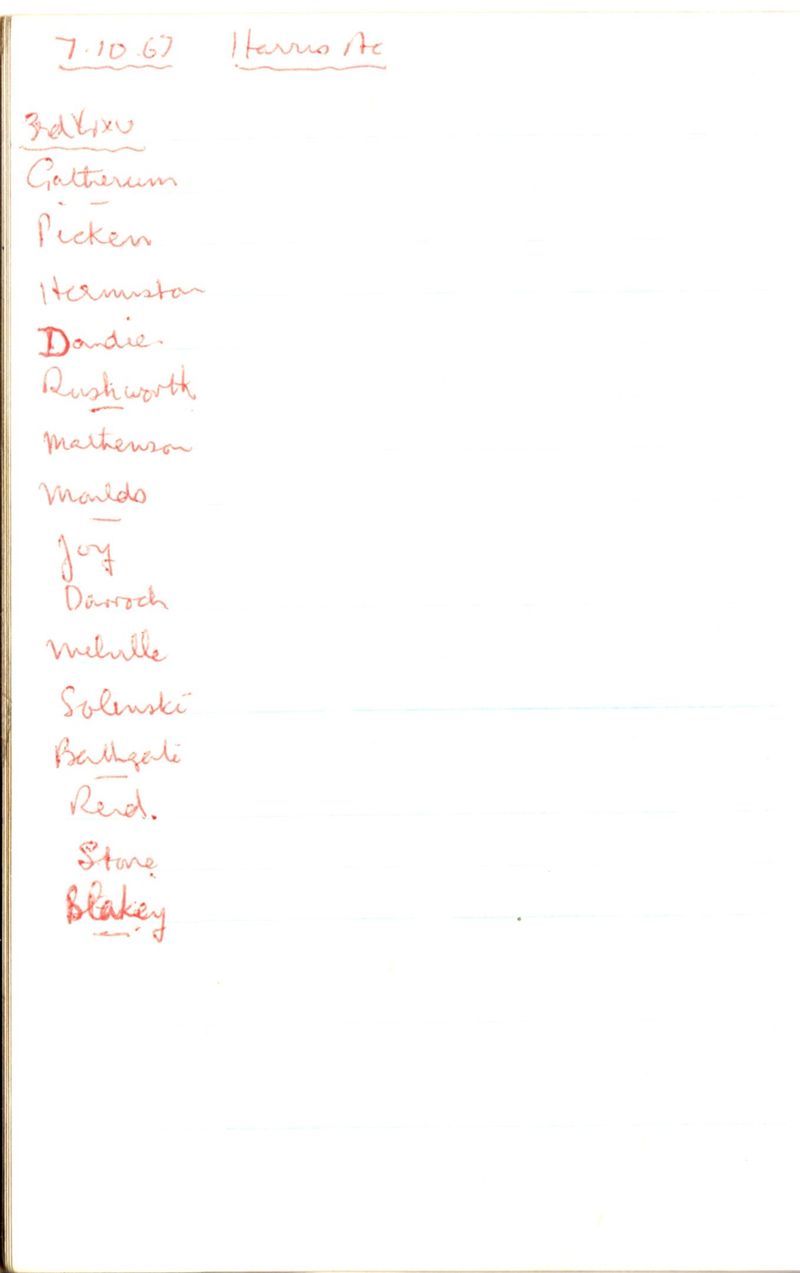 7.10.67 Harris Ac
3rd XV
Gatherum
Picken
Hermiston
Dandie.
Rushworth
Mathewson
Moulds
Joy
Darroch
Melville
Solenski
Bathgate
Reid.
Stone
Blakey